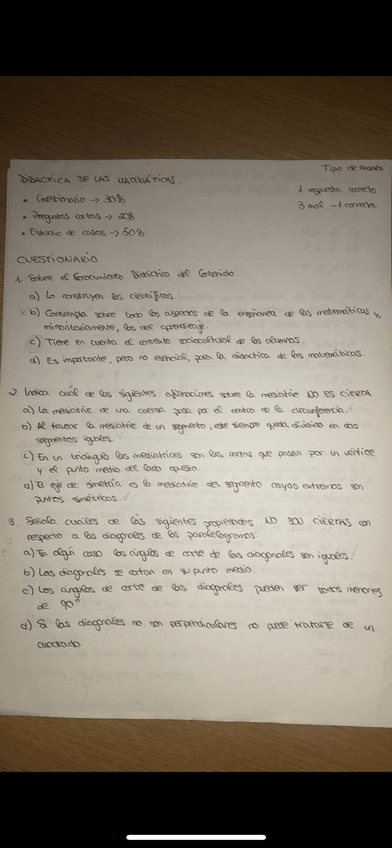 Tipo de examen
DIDÁCTICA DE LAS MATEMÁTICAS.
1 respuesta correcta
• Cuestionario → 30%
3 mal -1 correcta
• Preguntas cortas → 20%
• Estudio de casos → 50%
CUESTIONARIO
1. Sobre el Conocimiento Didáctico del Contenido:
a) Lo construyen los científicos.
b) Contempla sobre todo los aspectos de la enseñanza de las matemáticas y,
minoritariamente, los del aprendizaje.
c) Tiene en cuenta el contexto sociocultural de los alumnos.
d) Es importante, pero no esencial, para la didáctica de las matemáticas.
2. Indica cuál de las siguientes afirmaciones sobre la mediatriz NO ES CIERTA.
a) La mediatriz de una cuerda pasa por el centro de la circunferencia.
b) Al trazar la mediatriz de un segmento, este siempre queda dividido en dos
segmentos iguales.
c) En un triángulo las mediatrices son las rectas que pasan por un vértice
y el punto medio del lado opuesto.
d) El eje de simetría es la mediatriz del segmento cuyos extremos son
puntos simétricos.
3. Señala cuáles de las siguientes propiedades NO SON CIERTAS con
respecto a las diagonales de los paralelogramos:
a) En algún caso los ángulos de corte de las diagonales son iguales.
b) Las diagonales se cortan en su punto medio.
c) Los ángulos de corte de las diagonales pueden ser todos menores
de 90°
d) Si las diagonales no son perpendiculares no puede tratarse de un
cuadrado